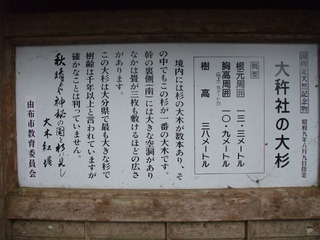 国指定天然記念物
昭和九年八月九日指定
大杵社の大杉
概要
根元周囲 一三・三メートル
胸高周囲 一〇・九メートル
樹高 三八メートル
境内には杉の大木が数本あり、そ
の中でもこの杉が一番の大木です。
幹の裏側(南)には大きな空洞があり
なかは畳が三枚も敷けるほどの広さ
があります。
この大杉は大分県で最も大きな杉で
樹齢は千年以上と言われていますが
確かなことは判っていません。
秋晴や神秘の園の杉に
大木紅堤
由布市教育委員会